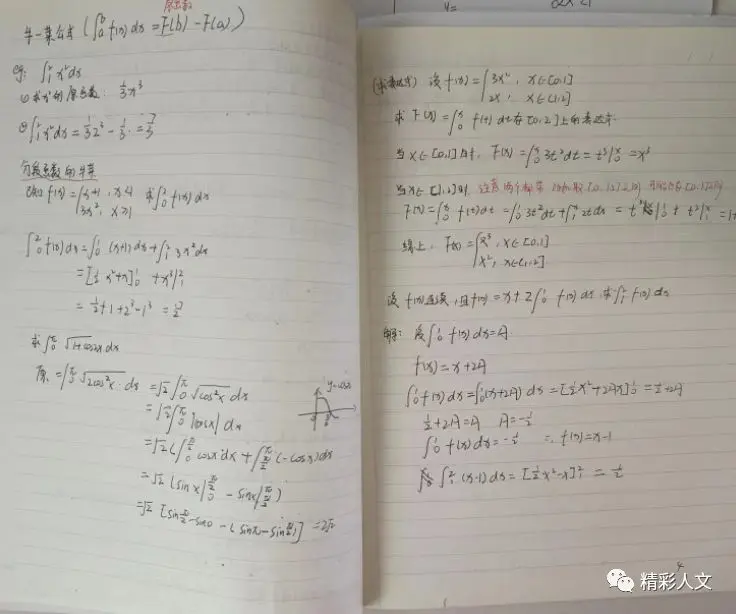 原函数
牛-莱公式 (∫₀ᵇ f(x) dx = F(b) - F(a))
eg: ∫₁² x² dx
① 求x²的原函数: ⅓x³
② ∫₁² x² dx = ⅓2³ - ⅓ = 7/3
分段函数的牛莱
f(x) = { x+1, x≤1 求∫₀² f(x) dx
3x², x>1
∫₀² f(x) dx = ∫₀¹ (x+1) dx + ∫₁² 3x² dx
= [½x²+x]₀¹ + x³|₁²
= ½+1+2³-1³ = 17/2
求∫₀^π √(1+cos2x) dx
原 = ∫₀^π √(2cos²x) dx = √2 ∫₀^π √(cos²x) dx
= √2 ∫₀^π |cosx| dx
y=cosx
= √2 (∫₀^(π/2) cosx dx + ∫_(π/2)^π (-cosx) dx
= √2 (sinx|₀^(π/2) - sinx|_(π/2)^π)
= √2 [sin π/2 - sin0 - (sinπ - sin π/2)] = 2√2
y=
(求表达式) 设 f(x) = { 3x², x∈[0,1]
2x, x∈(1,2]
求 F(x) = ∫₀ˣ f(t) dt 在[0,2]上的表达式.
当x∈[0,1]时, F(x) = ∫₀ˣ 3t² dt = t³|₀ˣ = x³
当x∈(1,2]时, 注意
F(x) = ∫₀ˣ f(t) dt = ∫₀¹ 3t² dt + ∫₁ˣ 2t dt = t³|₀¹ + t²|₁ˣ
综上, F(x) = { x³, x∈[0,1]
x², x∈(1,2]
设f(x)连续, 且f(x) = x+2∫₀¹ f(x) dx, 求∫₁² f(x) dx
解: 设∫₀¹ f(x) dx = A
f(x) = x+2A
∫₀¹ f(x) dx = ∫₀¹ (x+2A) dx = [½x²+2Ax]₀¹ = ½+2A
½+2A = A A = -½
∫₀¹ f(x) dx = -½ ∴ f(x) = x-1
∫₁² (x-1) dx = [½x²-x]₁² = ½
4
精彩人文